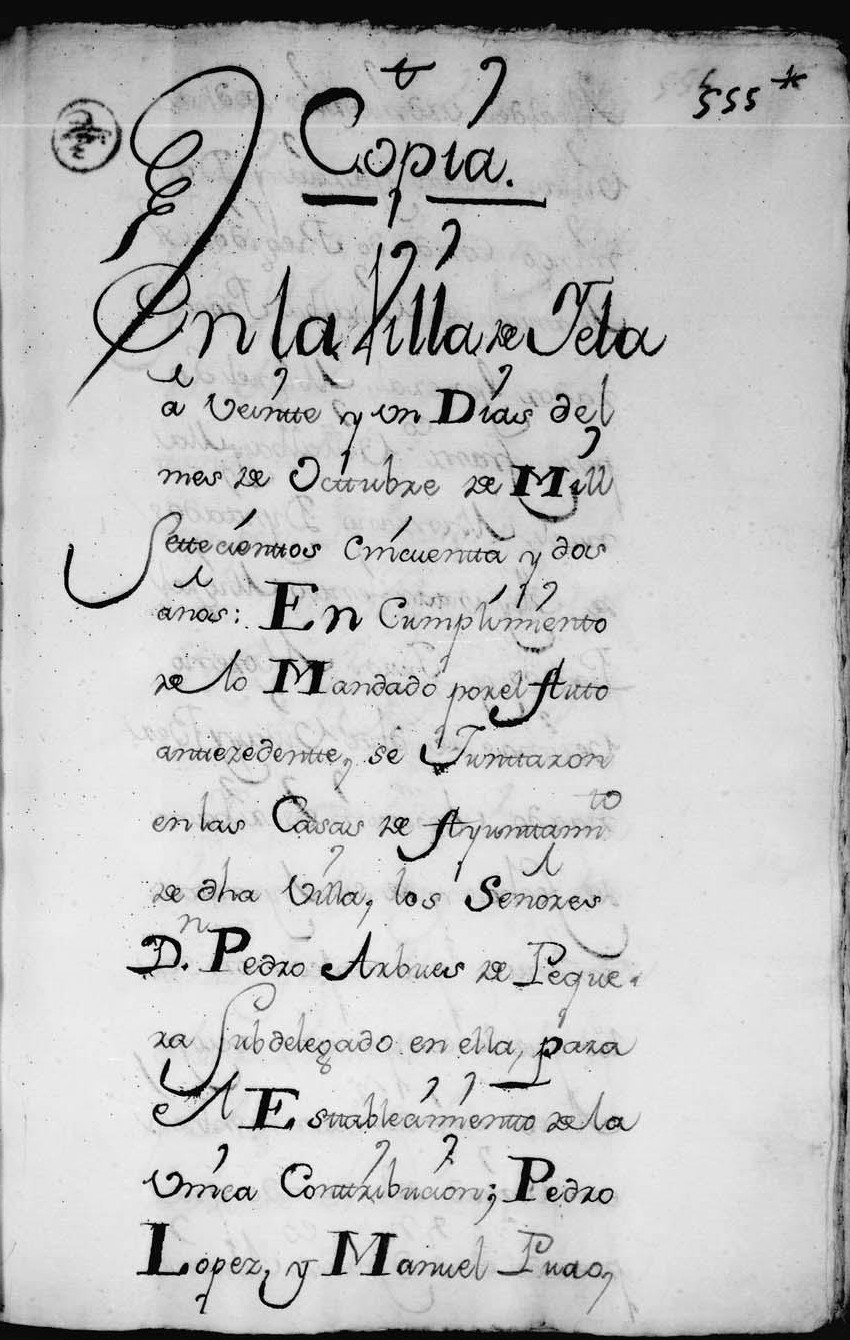 555
Copia.
En la Villa de Tela
a Veintte y un Dias del
mes de Octtubre de Mill
Settecienttos Cincuentta y dos
años: En Cumplimiento
de lo Mandado por el Auto
anttezedentte, se Junttaron
en las Casas de Ayunttamto
de dha Villa, los Señores
Dn. Pedro Arbues de Peque-
ra Subdelegado en ella, para
el Esttablecimientto de la
Unica Conttribucion; Pedro
Lopez, y Manuel